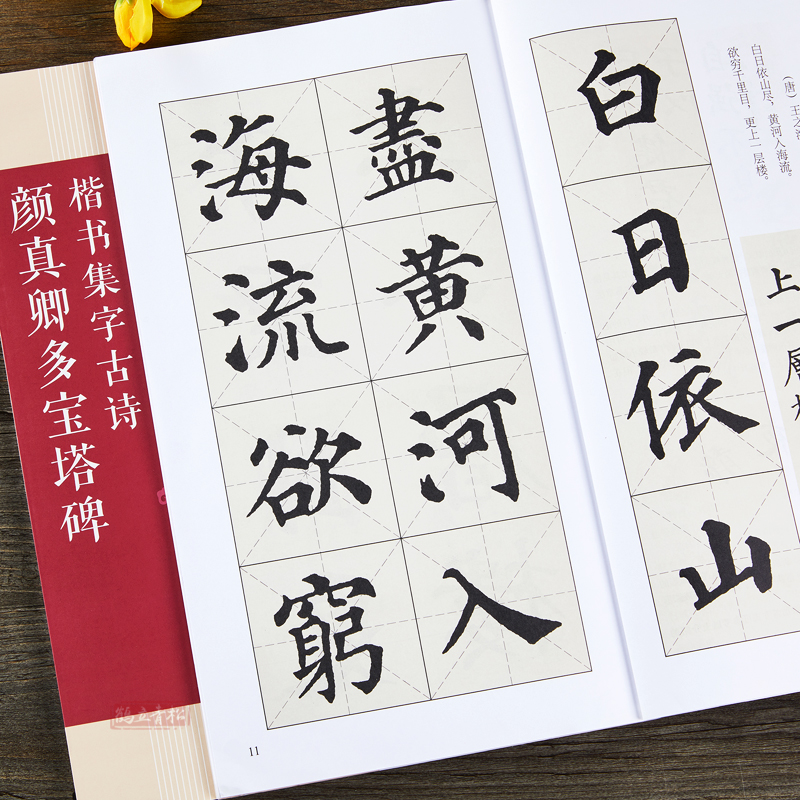 楷书集字古诗
颜真卿多宝塔碑
白日依山
盡黄河入
海流欲窮
白日依山尽，黄河入海流。
欲穷千里目，更上一层楼。
上一層
11
鹤立青松